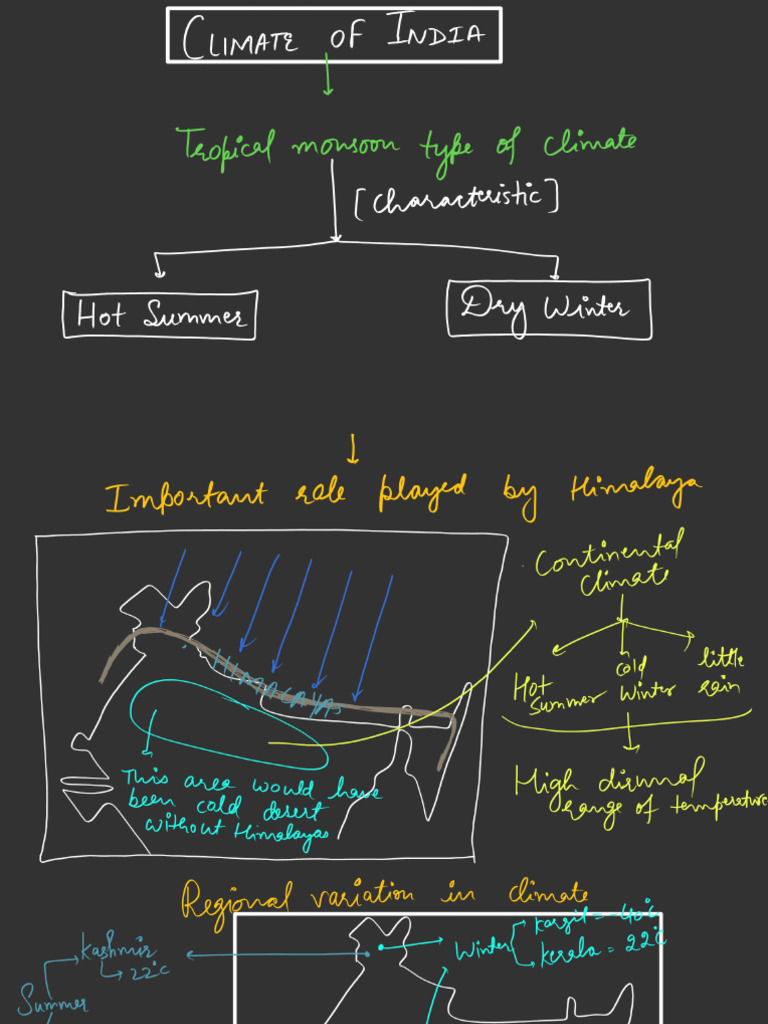 CLIMATE OF INDIA
Tropical monsoon type of climate
[Characteristic]
Hot Summer
Dry Winter
Important role played by Himalaya
Continental
Climate
Hot
Summer
cold
Winter
little
rain
HIMALAYAS
This area would have
been cold desert
without Himalayas
High diurnal
range of temperature
Regional variation in climate
Kargil = -40°C
Winter
Kerala = 22°C
Kashmir
22°C
Summer